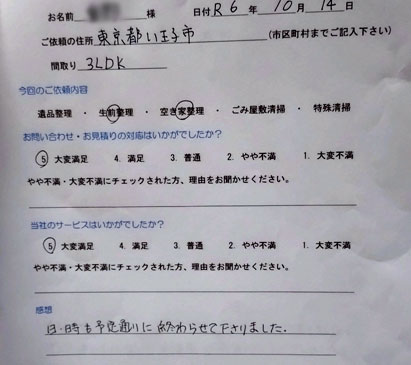 お名前 様 日付 R6年10月14日
ご依頼の住所 東京都八王子市 (市区町村までご記入下さい)
間取り 3LDK
今回のご依頼内容
遺品整理 ・ 生前整理 ・ 空き家整理 ・ ごみ屋敷清掃 ・ 特殊清掃
お問い合わせ・お見積りの対応はいかがでしたか?
5 大変満足 4. 満足 3. 普通 2. やや不満 1. 大変不満
やや不満・大変不満にチェックされた方、理由をお聞かせください。
当社のサービスはいかがでしたか?
5 大変満足 4. 満足 3. 普通 2. やや不満 1. 大変不満
やや不満・大変不満にチェックされた方、理由をお聞かせください。
感想
日・時も予定通りに終わらせて下さりました。